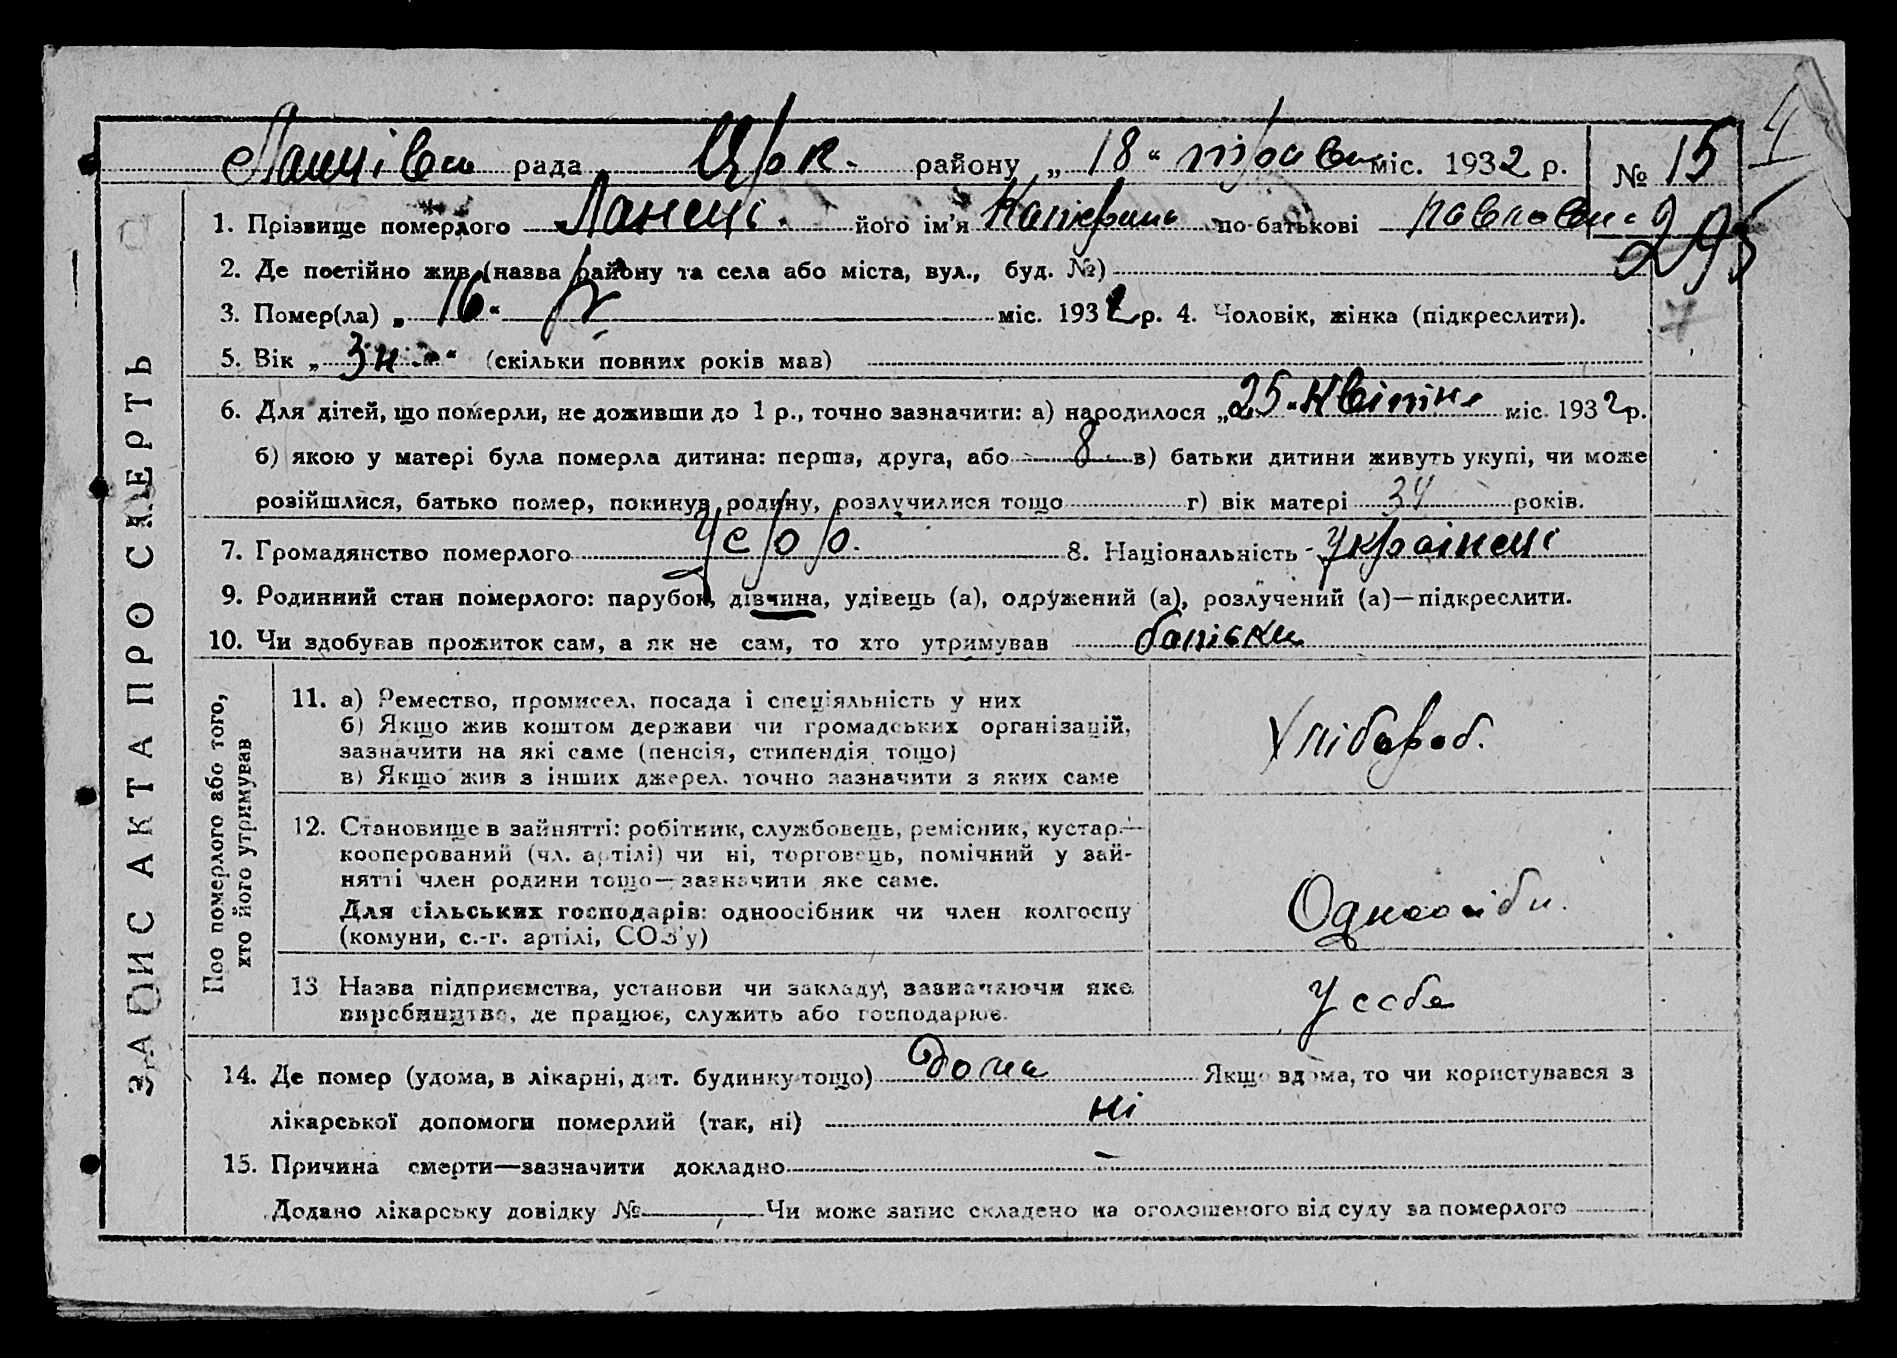 рада Црк. району „18“ травня міс. 1932 р. № 15
1. Прізвище померлого Ланець його ім'я Катерина по-батькові Павловна
295
2. Де постійно жив (назва району та села або міста, вул., буд. №)
3. Помер(ла) „16“ міс. 1932 р. 4. Чоловік, жінка (підкреслити).
5. Вік „3 н“ (скільки повних років мав)
6. Для дітей, що померли, не доживши до 1 р., точно зазначити: а) народилося „25“ квітня міс. 1932 р.
б) якою у матері була померла дитина: перша, друга, або 8 в) батьки дитини живуть укупі, чи може
розійшлися, батько помер, покинув родину, розлучилися тощо г) вік матері 34 років.
7. Громадянство померлого Усрр. 8. Національність Українець
9. Родинний стан померлого: парубок, дівчина, удівець (а), одружений (а), розлучений (а)—підкреслити.
10. Чи здобував прожиток сам, а як не сам, то хто утримував батьки
ЗАПИС АКТА ПРО СМЕРТЬ
Про померлого або того,
хто його утримував
11. а) Ремество, промисел, посада і спеціяльність у них
б) Якщо жив коштом держави чи громадських організацій,
зазначити на які саме (пенсія, стипендія тощо)
в) Якщо жив з інших джерел, точно зазначити з яких саме
Хлібороб.
12. Становище в зайнятті: робітник, службовець, ремісник, кустар—
кооперований (чл. артілі) чи ні, торговець, помічний у зай-
нятті член родини тощо—зазначити яке саме.
Для сільських господарів: одноосібник чи член колгоспу
(комуни, с.-г. артілі, СОЗ'у)
Одноосібн.
13 Назва підприємства, установи чи закладу, зазначаючи яке
виробництво, де працює, служить або господарює.
У себе
14. Де помер (удома, в лікарні, дит. будинку тощо) дома Якщо вдома, то чи користувався з
лікарської допомоги померлий (так, ні) ні
15. Причина смерти—зазначити докладно –
Додано лікарську довідку № Чи може запис складено на оголошеного від суду за померлого